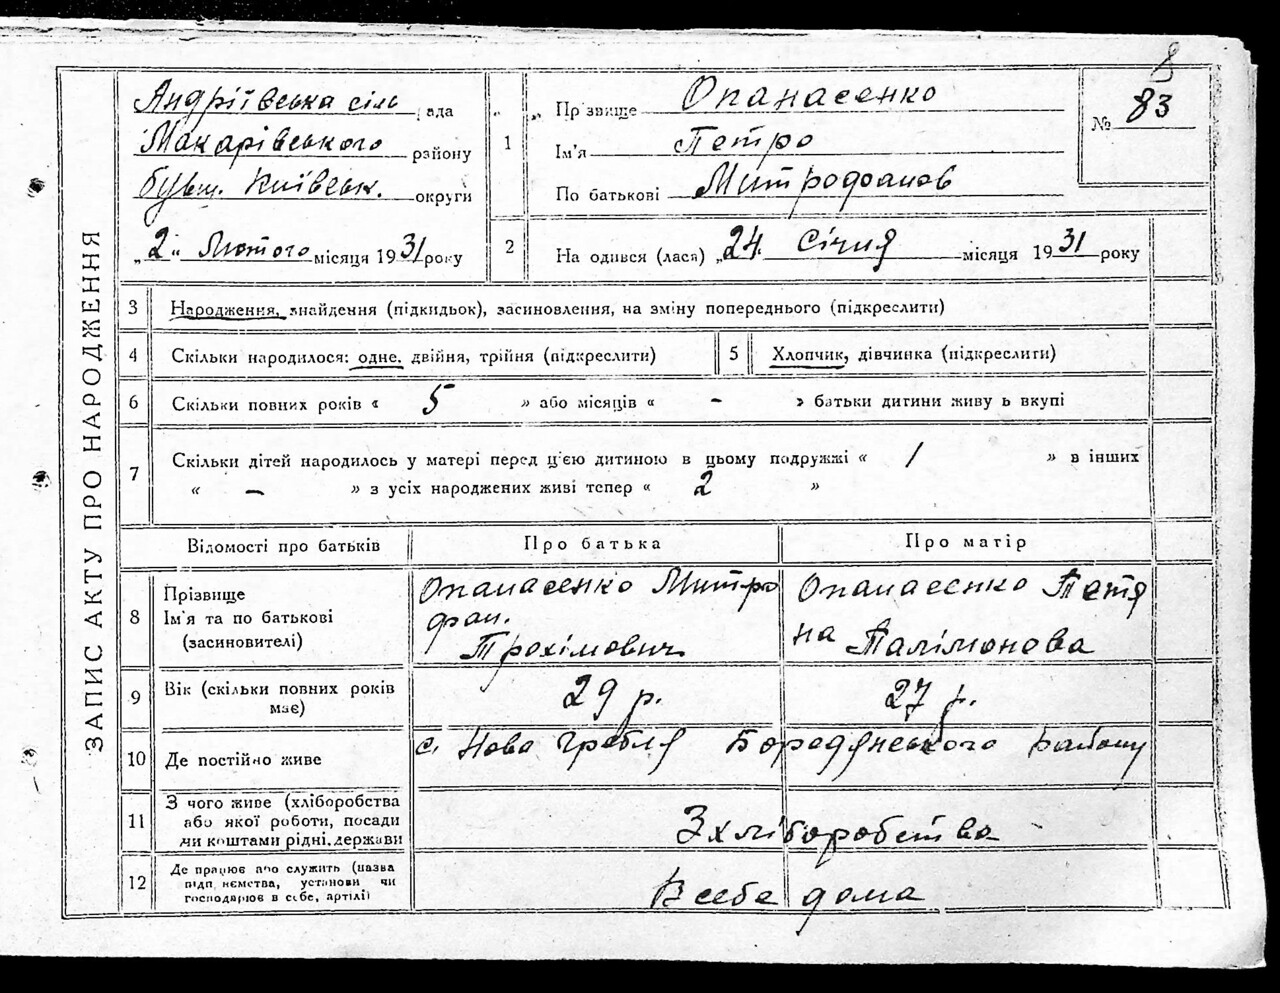 8
ЗАПИС АКТУ ПРО НАРОДЖЕННЯ
Андріївська сіль рада
Макарівського району
бувш. Київськ. округи
„2“ Лютого місяця 1931 року
№ 83
1 Прізвище Опанасенко
Ім'я Петро
По батькові Митрофанов
2 На одився (лася) „24. Січня місяця 1931 року
3 Народження, знайдення (підкидьок), засиновлення, на зміну попереднього (підкреслити)
4 Скільки народилося: одне, двійня, трійня (підкреслити)
5 Хлопчик, дівчинка (підкреслити)
6 Скільки повних років « 5 » або місяців « – » батьки дитини живу ь вкупі
7 Скільки дітей народилось у матері перед ц'єю дитиною в цьому подружжі « 1 » в інших
« – » з усіх народжених живі тепер « 2 »
Відомості про батьків Про батька Про матір
8 Прізвище
Ім'я та по батькові
(засиновителі)
Опанасенко Митро
фан.
Трохімович
Опанасенко Тетя
на Палімонова
9 Вік (скільки повних років
має)
29 р. 27 р.
10 Де постійно живе
с. Нова Гребля Бородянського району
11 З чого живе (хліборобства
або якої роботи, посади
чи коштами рідні, держави
Зхліборобства
12 Де працює або служить (назва
підп ємства, установи чи
господарює в себе, артілі)
Всебе дома